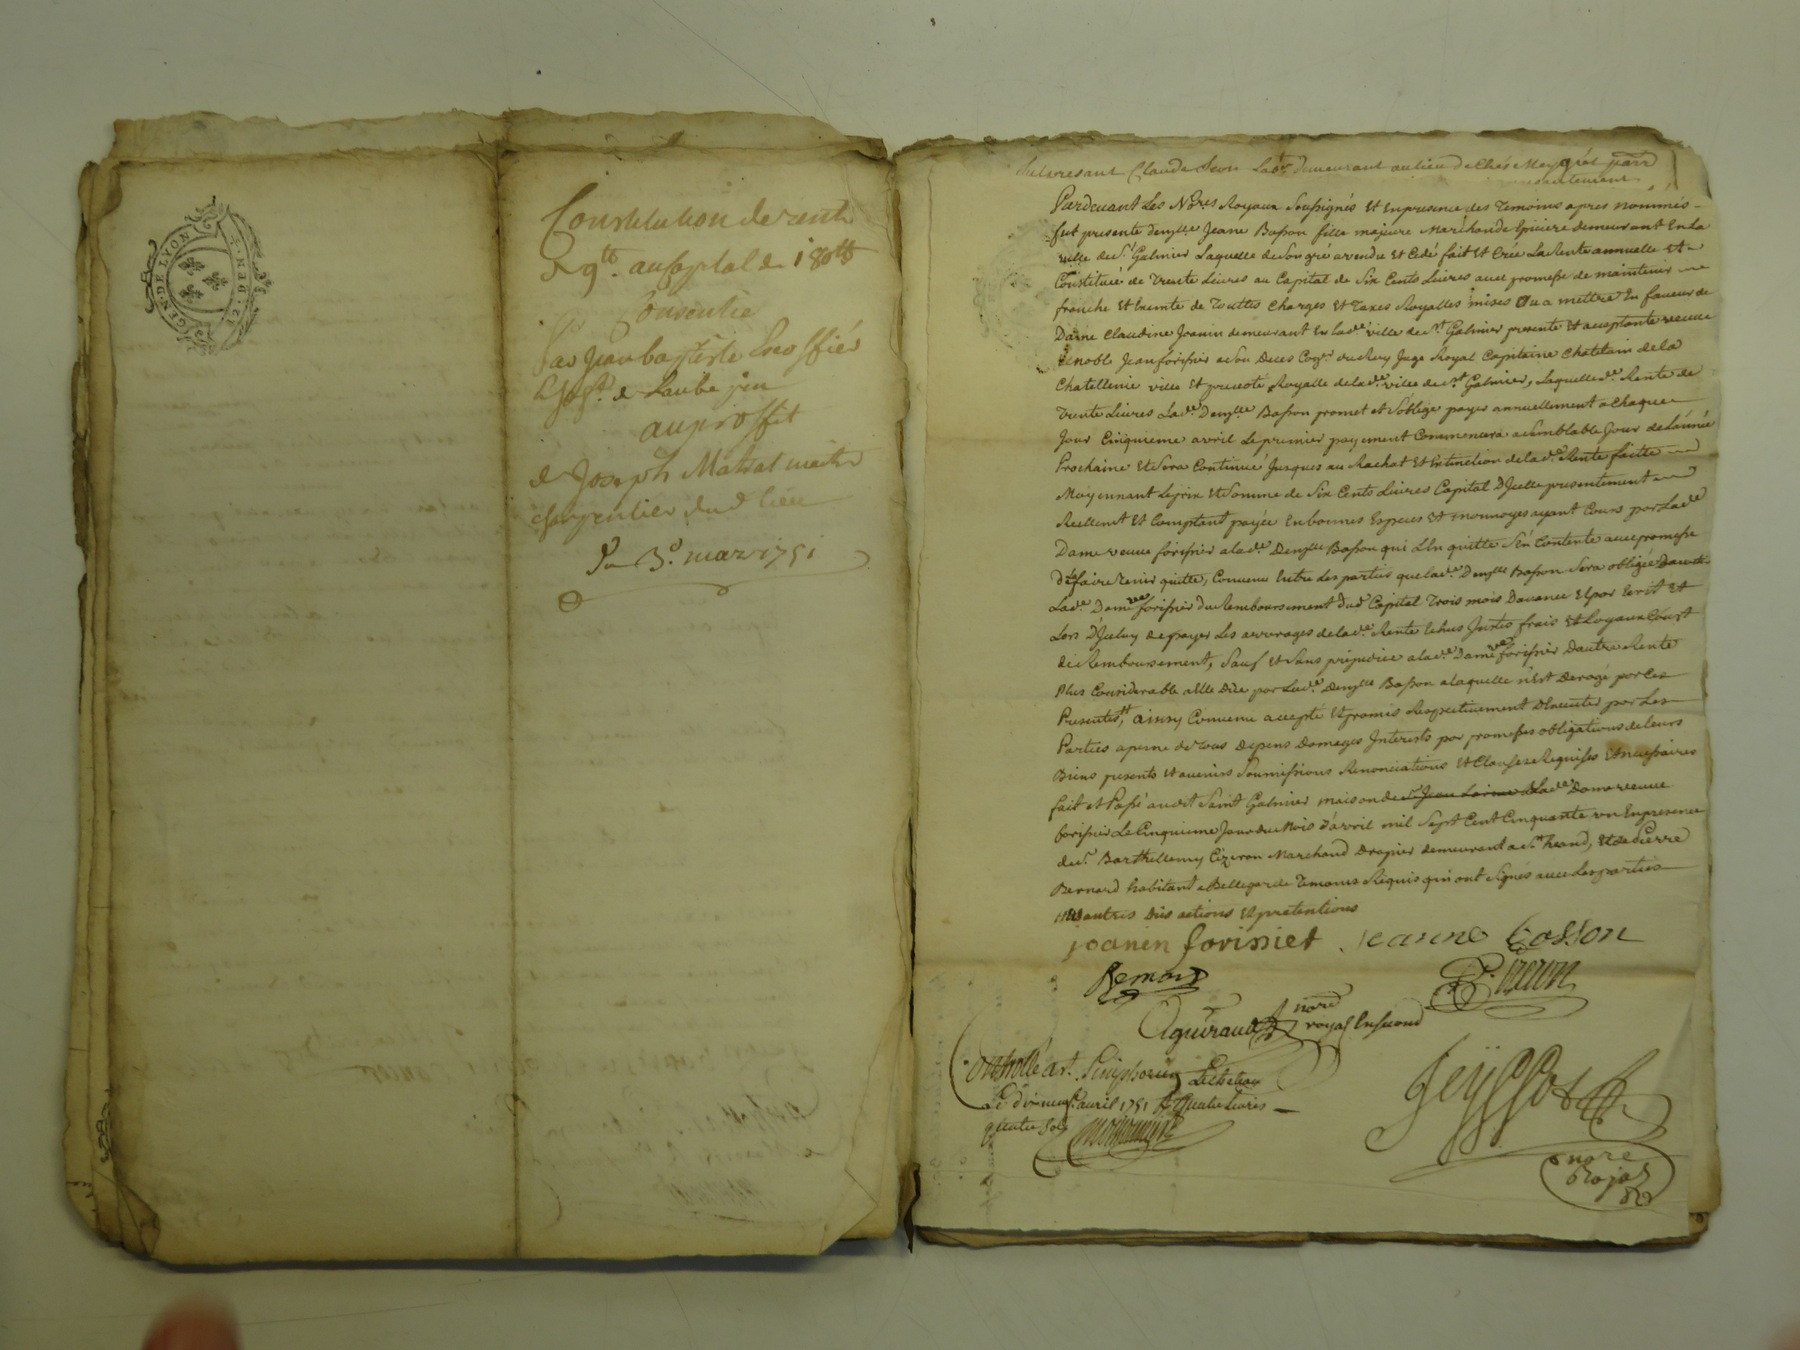 GEN·DE LYON
2S· DEN·
Constitution de rente
De 9tt. au Capital de 180tt
Consentie
Par Jean baptiste Escoffier
de Laubepin
au proffit
de Joseph Matrat maitre
charpentier dud. lieu
Du 3e. mars 1751
Claude Jean Labr. demeurant au lieu de
Pardevant Les Nores Royaux Soussignés Et En presence des Temoins apres nommés
fut presente demlle Jeane Bosson fille majeure Marchande Epiciere demeurant En La
ville de St. Galmier Laquelle de Son gré a vendu et Cédé fait Et Créé La Rente annuelle Et
Constituée de Trente Livres au Capital de Six Cents Livres avec promesse de maintenir
franche Et Exemte de Touttes Charges Et Taxes Royalles mises Ou a mettre En faveur de
Dame Claudine Joanin demeurant En lade ville de St. Galmier presente Et acceptante veuve
de noble Jean forissier a Son Deces Coner. du Roy Juge Royal Capitaine Chatelain de la
Chatellenie ville Et prevoté Royalle de lade. ville de St. Galmier, Laquelle de. Rente de
Trente Livres Lade. Demlle Bosson promet et S'oblige payer annuellement a chaque
Jour Cinquieme avril Le premier payement Commencera a Semblable Jour de L'année
Prochaine Et Sera Continué Jusques au Rachat Et Extinction de lade. Rente faitte
Moyennant Le prix Et Somme de Six Cents Livres Capital D'Icelle presentement
Reellemt Et Comptant payée En bonnes Especes Et monnoyes ayant Cours par Lade
Dame veuve forissier a lade. Demlle Bosson qui L'En quitte S'En Contente avec promesse
de la faire Tenir quitte, Convenu Entre Les parties que lade. Demlle Bosson Sera obligée
Lade. Dame vve forissier du Remboursement dud Capital Trois mois Davance Et par Ecrit Et
Lors D'Iceluy de payer Les arrerages de lade. Rente Echus Justes frais Et Loyaux Coust
de Remboursement, Sauf Et Sans prejudice a lade. Dame vve forissier D'autre Rente
Plus Considerable a Elle Düe par Lade. Demlle Bosson a laquelle n'Est Derogé par Ces
Presentes, ainsy Convenu accepté Et promis Respectivement D'Executer par Les
Parties a peine de Tous depens Domages Interests par promesses obligations de Leurs
Biens presents Et avenirs Soumissions Renonciations Et Clauses Requises Et necessaires
fait et Passé audit Saint Galmier maison de Lade Dame veuve
forissier Le Cinquieme Jour du Mois D'avril mil Sept Cent Cinquante un En presence
de Sr. Barthellemy Cizeron Marchand Drapier demeurant a St. heand, Et de Pierre
Bernard habitant a Bellegarde Temoins Requis qui ont Signés avec Les parties
autres Dües actions Et pretentions
joanin forissiet . jeanne bosson
Bernard
B. Cizeron
Aguiraud nore royal En second
Controllé a St. Simphorien Le chateau
Le dixneuf avril 1751 R. Quatre Livres
quatre sols
Jeyssot
nore
Royal